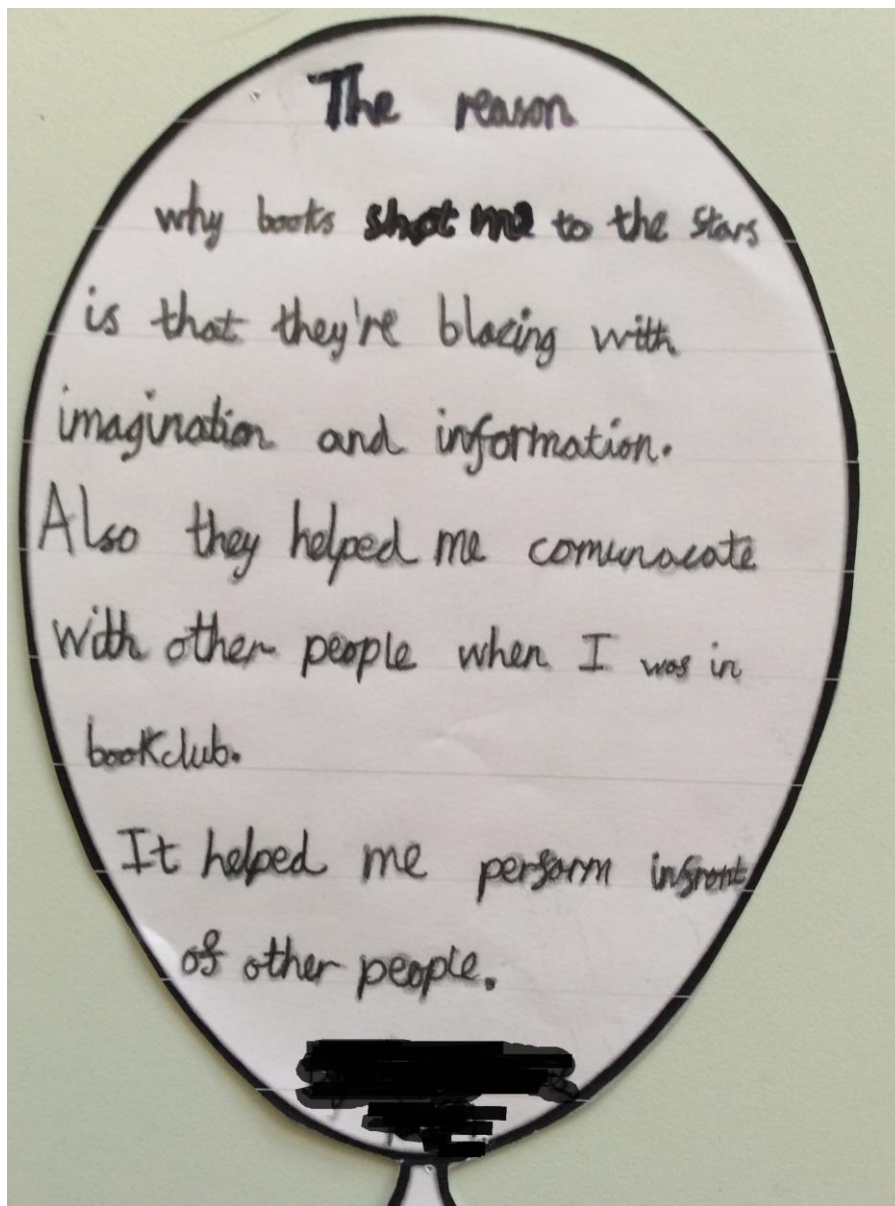 The reason
why books shot me to the stars
is that they're blazing with
imagination and information.
Also they helped me comunacate
with other people when I was in
bookclub.
It helped me perform infront
of other people.